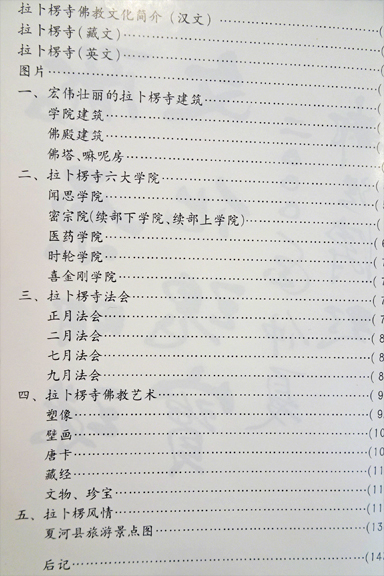 拉卜楞寺佛教文化简介(汉文)
拉卜楞寺(藏文)
拉卜楞寺(英文)
图片
一、宏伟壮丽的拉卜楞寺建筑
学院建筑
佛殿建筑
佛塔、嘛呢房
二、拉卜楞寺六大学院
闻思学院
密宗院(续部下学院、续部上学院)
医药学院
时轮学院
喜金刚学院
三、拉卜楞寺法会
正月法会
二月法会
七月法会
九月法会
四、拉卜楞寺佛教艺术
塑像
壁画
唐卡
藏经
文物、珍宝
五、拉卜楞风情
夏河县旅游景点图
后记